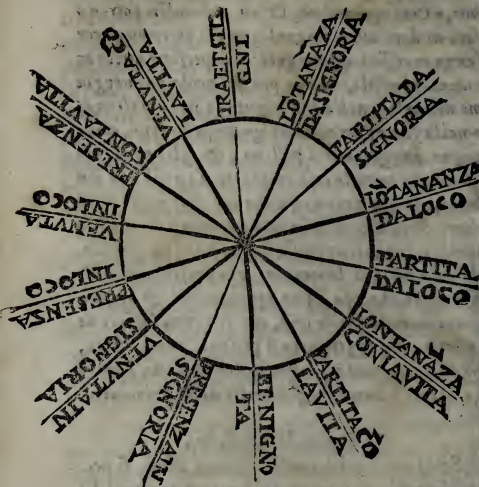 TRAETSIL
GNI
LÕTANAZA
DASIGNORIA
PARTITADA
SIGNORIA
LÕTANANZA
DALOCO
PARTITA
DALOCO
LONTANÃZA
CONLAVITA
PARTITACÕ
LAVITA
NIGNO
TA
PRESENZAIN
SIGNORIA
VENUTAIN
SIGNORIA
PRESENZA
INLOCO
VENUTA
INLOCO
PRESENZA
CONLAVITA
VENUTACÕ
LAVITA